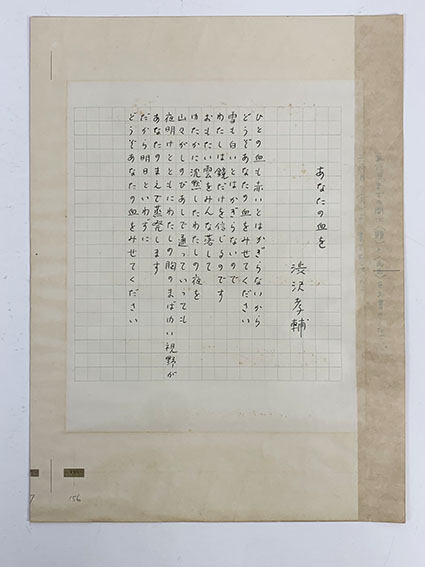 あなたの血を
渋沢孝輔
ひとの血も赤いとはかぎらないから
どうぞあなたの血をみせてください
雪も白いとはかぎらないので
わたしは鏡だけを信じるのです
おもたい雲をみんな落して
ゆたかに沈黙したわたしの夜を
山々がしのびあしで通っていっても
夜明けとともにわたしの胸のまばゆい視野が
あなたのまえで蒸発します
だから明日といわずに
どうぞあなたの血をみせてください
7
156